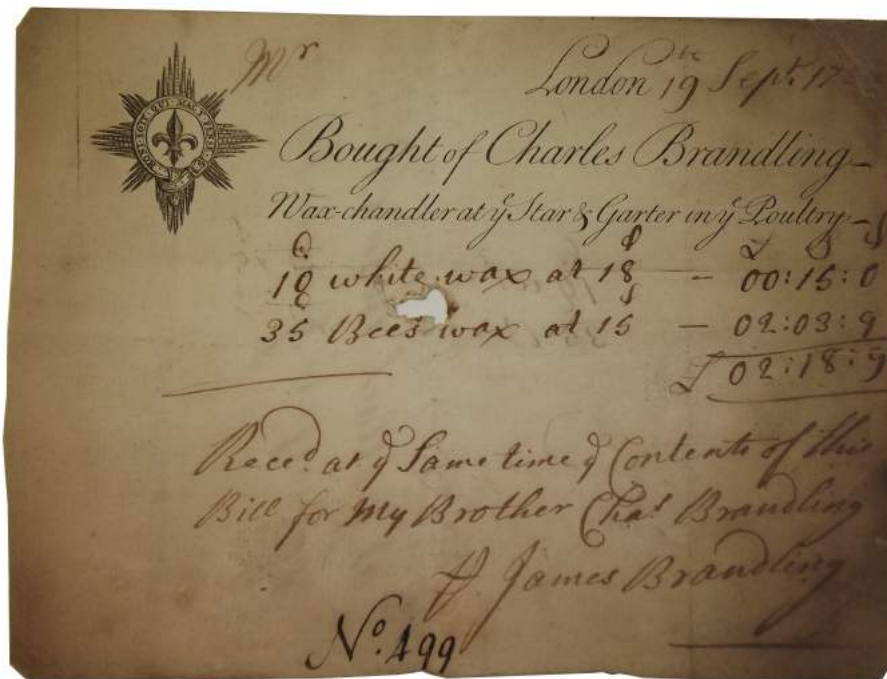 HONI · SOIT · QUI · MAL · Y · PENSE
Mr
London 19th Sept. 17
Bought of Charles Brandling
Wax-chandler at ye Star & Garter in ye Poultry
10 white wax at 18 — 00:15:0
35 Bees wax at 15 — 02:03:9
£ 02:18:9
Reced. at ye Same time ye Contents of this
Bill for My Brother Chas. Brandling
James Brandling
No. 499